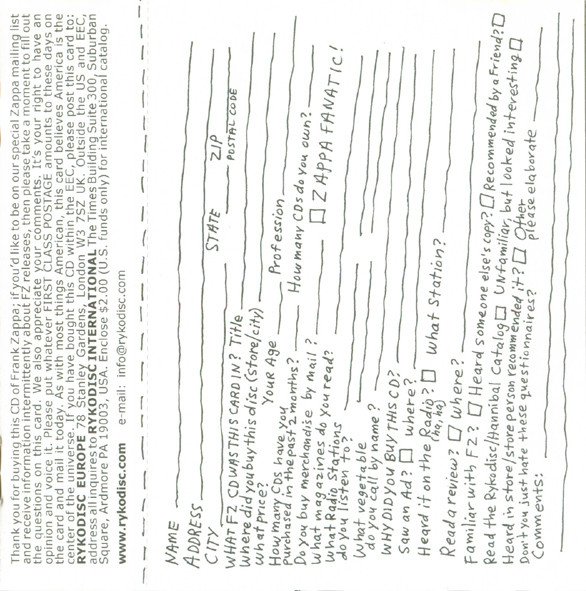 Thank you for buying this CD of Frank Zappa; if you'd like to be on our special Zappa mailing list
and receive information intermittently about FZ releases, then please take a moment to fill out
the questions on this card. We also appreciate your comments. It's your right to have an
opinion and voice it. Please put whatever FIRST CLASS POSTAGE amounts to these days on
the card and mail it today. As with most things American, this card believes America is the
center of the universe. If you have bought this CD within the EEC, please post this card to:
RYKODISC EUROPE 78 Stanley Gardens, London W3 7SZ UK. Outside the US and EEC,
address all inquires to RYKODISC INTERNATIONAL The Times Building Suite 300, Suburban
Square, Ardmore PA 19003, USA. Enclose $2.00 (U.S. funds only) for international catalog.
www.rykodisc.com e-mail: info@rykodisc.com
NAME
ADDRESS
CITY STATE ZIP
POSTAL CODE
WHAT FZ CD WAS THIS CARD IN? Title
Where did you buy this disc (store/city)
What Price? YOUR Age Profession
How many CDs have you
Purchased in the past 2 months? How many CDs do you own?
Do you buy merchandise by mail? ZAPPA FANATIC!
What magazines do you read?
What Radio Stations
do you listen to
What vegetable
do you call by name?
WHY DID YOU BUY THIS CD?
Saw an Ad? Where?
Heard it on the Radio? What Station?
(ha, ha)
Read a review? Where?
Familiar with FZ? Heard someone else's copy? Recommended by a Friend?
Read the Rykodisc/Hannibal Catalog Unfamiliar, but looked interesting
Heard in store/store person recommended it? Other
please elaborate
Don't you just hate these questionnaires?
Comments: